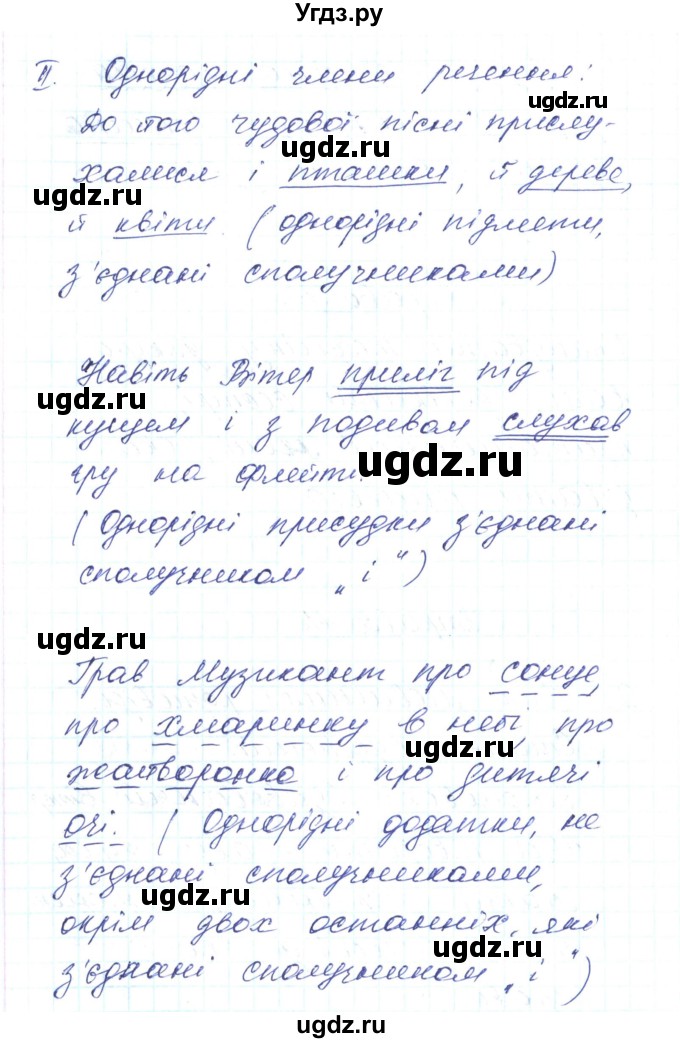 Угдз.ру
II. Однорідні члени речення:
ugdz.ru
До того чудової пісні прислу-
ugdz.ru
халися і пташки, й дерева,
ugdz.ru
й квіти. (однорідні підмети,
з'єднані сполучниками)
ugdz.ru
Навіть Вітер приліг під
ugdz.ru
кущем і з подивом слухав
ugdz.ru
гру на флейті.
(Однорідні присудки з'єднані
сполучником „і“)
ugdz.ru
Грав Музикант про сонце,
про хмаринку в небі про
ugdz.ru
жайворонка і про дитячі
очі. (Однорідні додатки, не
з'єднані сполучниками,
ugdz.ru
окрім двох останніх, які
ugdz.ru
з'єднані сполучником „і“)
ugdz.ru